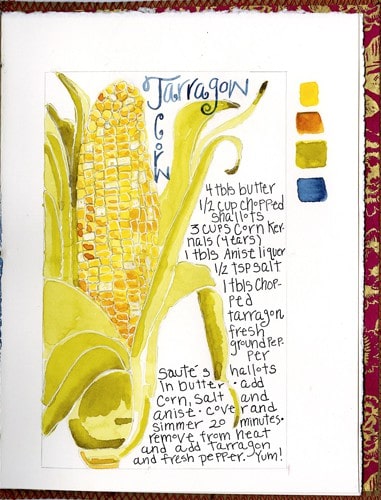 Tarragon
Corn
4 tbls butter
1/2 cup chopped
shallots
3 cups corn ker-
nals (4 ears)
1 tbls Anist liquer
1/2 tsp salt
1 tbls Chop-
ped
tarragon
fresh
ground Pep-
per
sauté shallots
in butter • add
corn, salt and
anise • cover and
simmer 20 minutes •
remove from heat
and add tarragon
and fresh pepper. Yum!